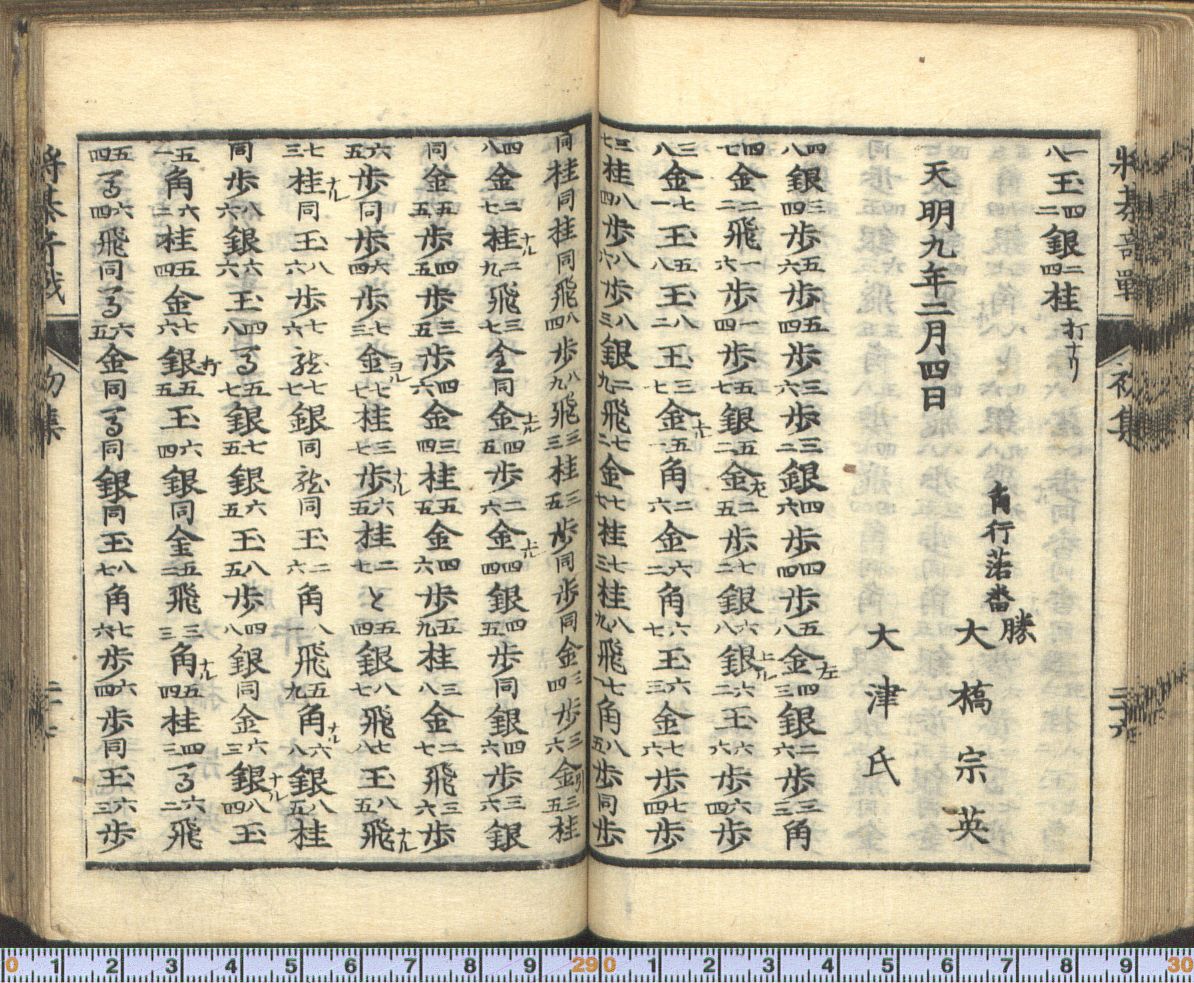 将棊奇戦
初集
二十六
一八玉四二銀二四桂打ナリ
天明九年二月四日
角行落番
勝
大橋宗英
大津氏
四八銀三四歩五六歩五四歩三六歩三二銀四六歩四四歩五八金左四三銀二六歩三三角
四七金二二飛一六歩一四歩五七銀五二金左二七歩七二銀六八銀上ル六二玉六六歩六四歩
三八金七一玉五八玉八二玉三七金左五一角二六金六二角六七玉六三金七六歩七四歩
三七桂八四歩八六歩八三銀二九飛七二金七七桂七三桂八九飛七一角八五歩同歩
同桂同桂同飛八四歩八九飛三三桂三五歩同歩同金三四歩三六金引五三桂
四八金二七桂ナル二九飛三七全同金左四五歩二六金右四四銀五五歩同銀四六歩三六銀
同金五五歩四五歩三五歩四六金四三桂五五金四六歩五九桂三八金二七飛三六歩
六五歩同歩六四歩七三金ヨル七七桂三七歩ナル六五桂二七と五四銀八七飛七八玉八五飛ナル
七三桂ナル同玉八六歩七六竜七七銀同竜同玉二六角八九飛五九角ナル六八銀八五桂
同歩八六銀六六玉四八馬五七銀七五銀六五玉八五歩四八銀同金六三銀ナル八四玉
五一角六三桂五四金七六銀打五五玉六四銀同全五二飛三三角ナル五四桂四三馬六二飛
五四馬六四飛同馬六五金同馬同銀同玉八七角七六歩六四歩同玉六三歩
将棊奇戦
初集
二十七